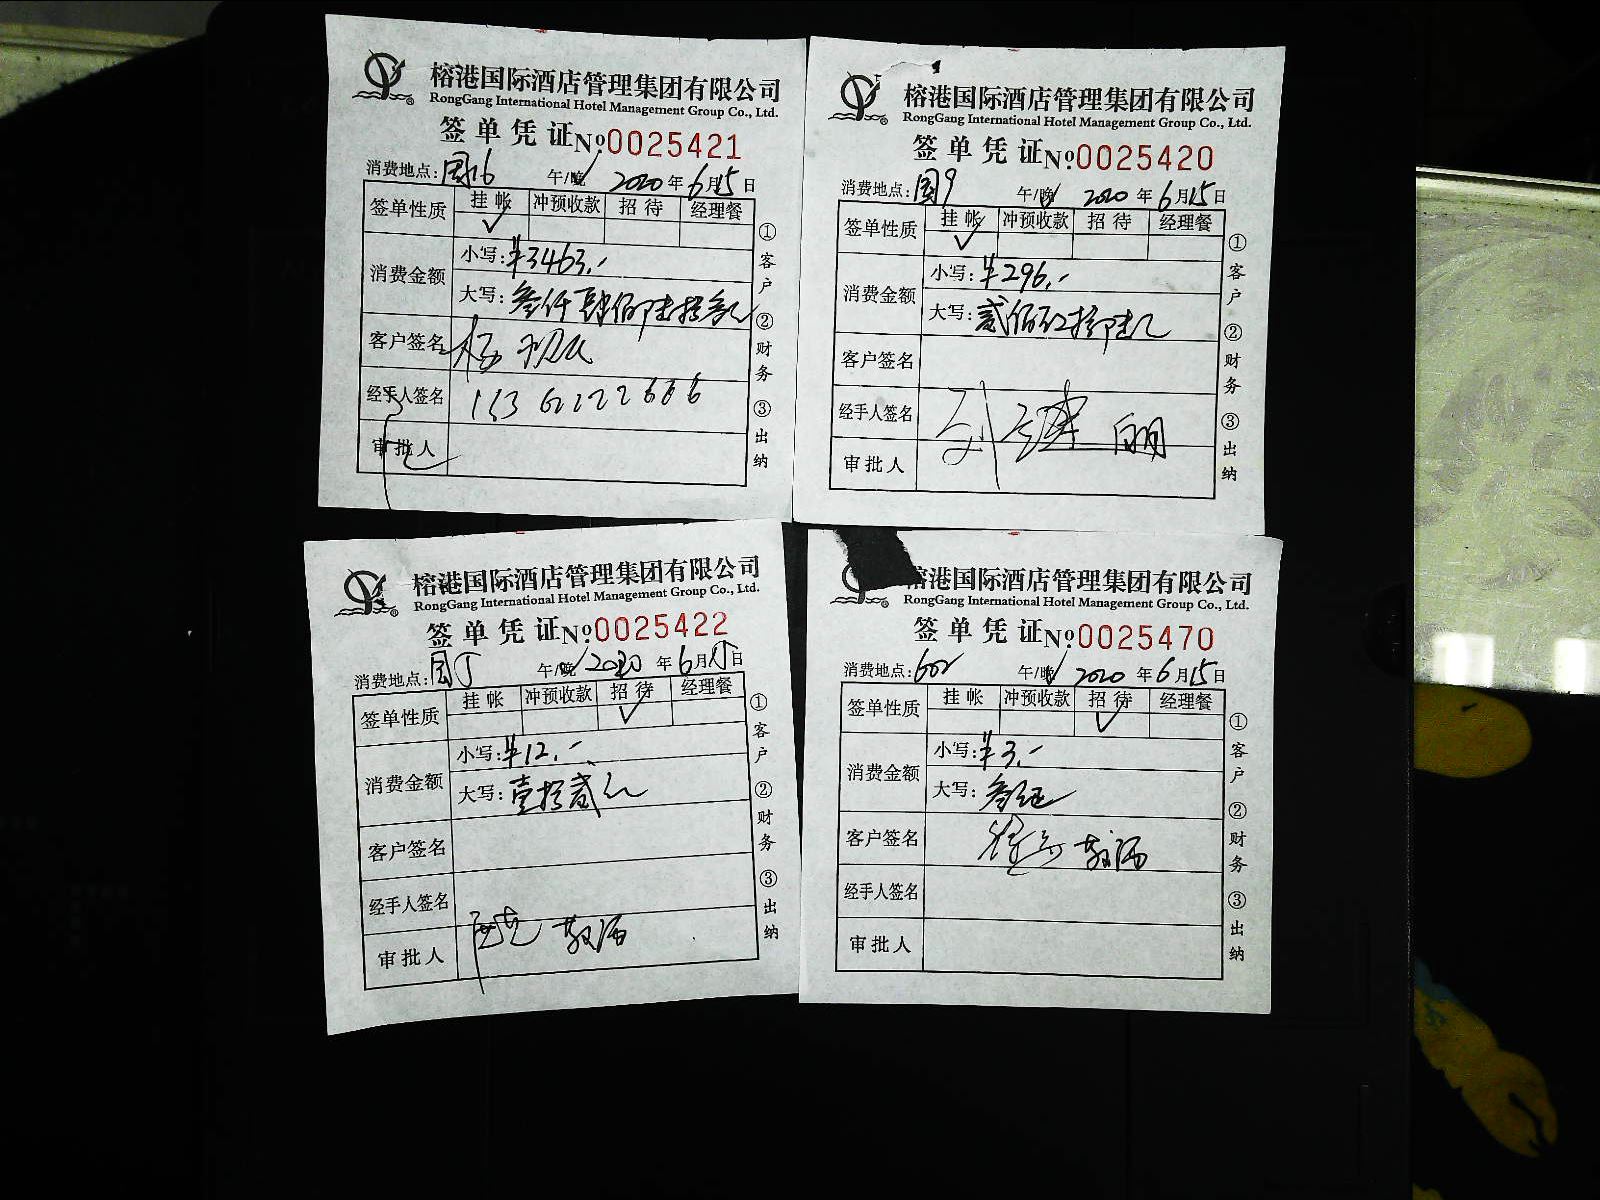 榕港国际酒店管理集团有限公司
RongGang International Hotel Management Group Co., Ltd.
签单凭证 №0025421
消费地点: 午/晚 2020年6月15日
签单性质 挂帐 冲预收款 招待 经理餐
消费金额 小写: ¥3463.-
大写: 叁仟肆佰陆拾叁元
客户签名
经手人签名
审批人
①客户 ②财务 ③出纳
榕港国际酒店管理集团有限公司
RongGang International Hotel Management Group Co., Ltd.
签单凭证 №0025420
消费地点: 园9 午/晚 2020年6月15日
签单性质 挂帐 冲预收款 招待 经理餐
消费金额 小写: ¥296.-
大写: 贰佰玖拾陆元
客户签名
经手人签名
审批人
①客户 ②财务 ③出纳
榕港国际酒店管理集团有限公司
RongGang International Hotel Management Group Co., Ltd.
签单凭证 №0025422
消费地点: 午/晚 2020年6月15日
签单性质 挂帐 冲预收款 招待 经理餐
消费金额 小写: ¥12.-
大写: 壹拾贰元
客户签名
经手人签名
审批人 敬酒
①客户 ②财务 ③出纳
榕港国际酒店管理集团有限公司
RongGang International Hotel Management Group Co., Ltd.
签单凭证 №0025470
消费地点: 602 午/晚 2020年6月15日
签单性质 挂帐 冲预收款 招待 经理餐
消费金额 小写: ¥3.-
大写: 叁元正
客户签名 敬酒
经手人签名
审批人
①客户 ②财务 ③出纳